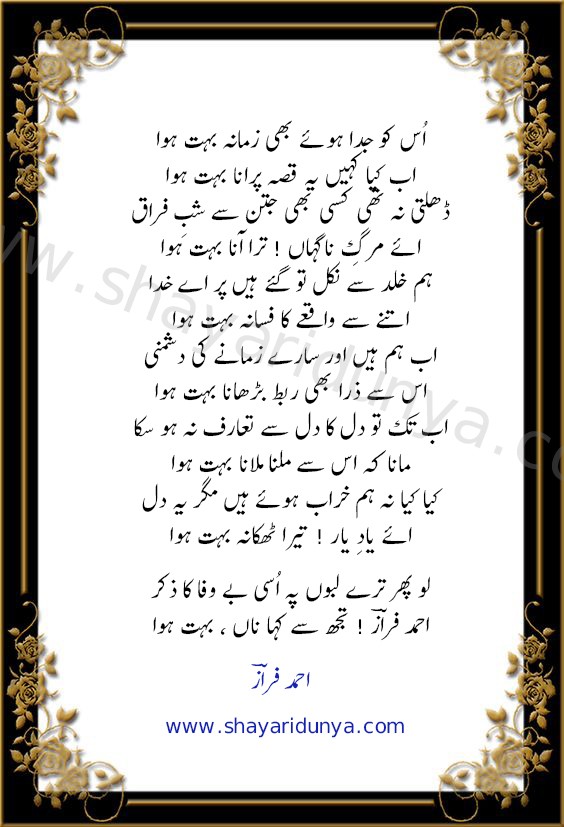 اُس کو جدا ہوئے بھی زمانہ بہت ہوا
اب کیا کہیں یہ قصہ پرانا بہت ہوا
ڈھلتی نہ تھی کسی بھی جتن سے شبِ فراق
ائے مرگِ ناگہاں ! ترا آنا بہت ہوا
ہم خلد سے نکل تو گئے ہیں پر اے خدا
اتنے سے واقعے کا فسانہ بہت ہوا
اب ہم ہیں اور سارے زمانے کی دشمنی
اس سے ذرا بھی ربط بڑھانا بہت ہوا
اب تک تو دل کا دل سے تعارف نہ ہو سکا
مانا کہ اس سے ملنا ملانا بہت ہوا
کیا کیا نہ ہم خراب ہوئے ہیں مگر یہ دل
ائے یادِ یار ! تیرا ٹھکانہ بہت ہوا
لو پھر ترے لبوں پہ اُسی بے وفا کا ذکر
احمد فرازؔ ! تجھ سے کہا ناں ، بہت ہوا
احمد فرازؔ
www.shayaridunya.com
www.shayaridunya.com